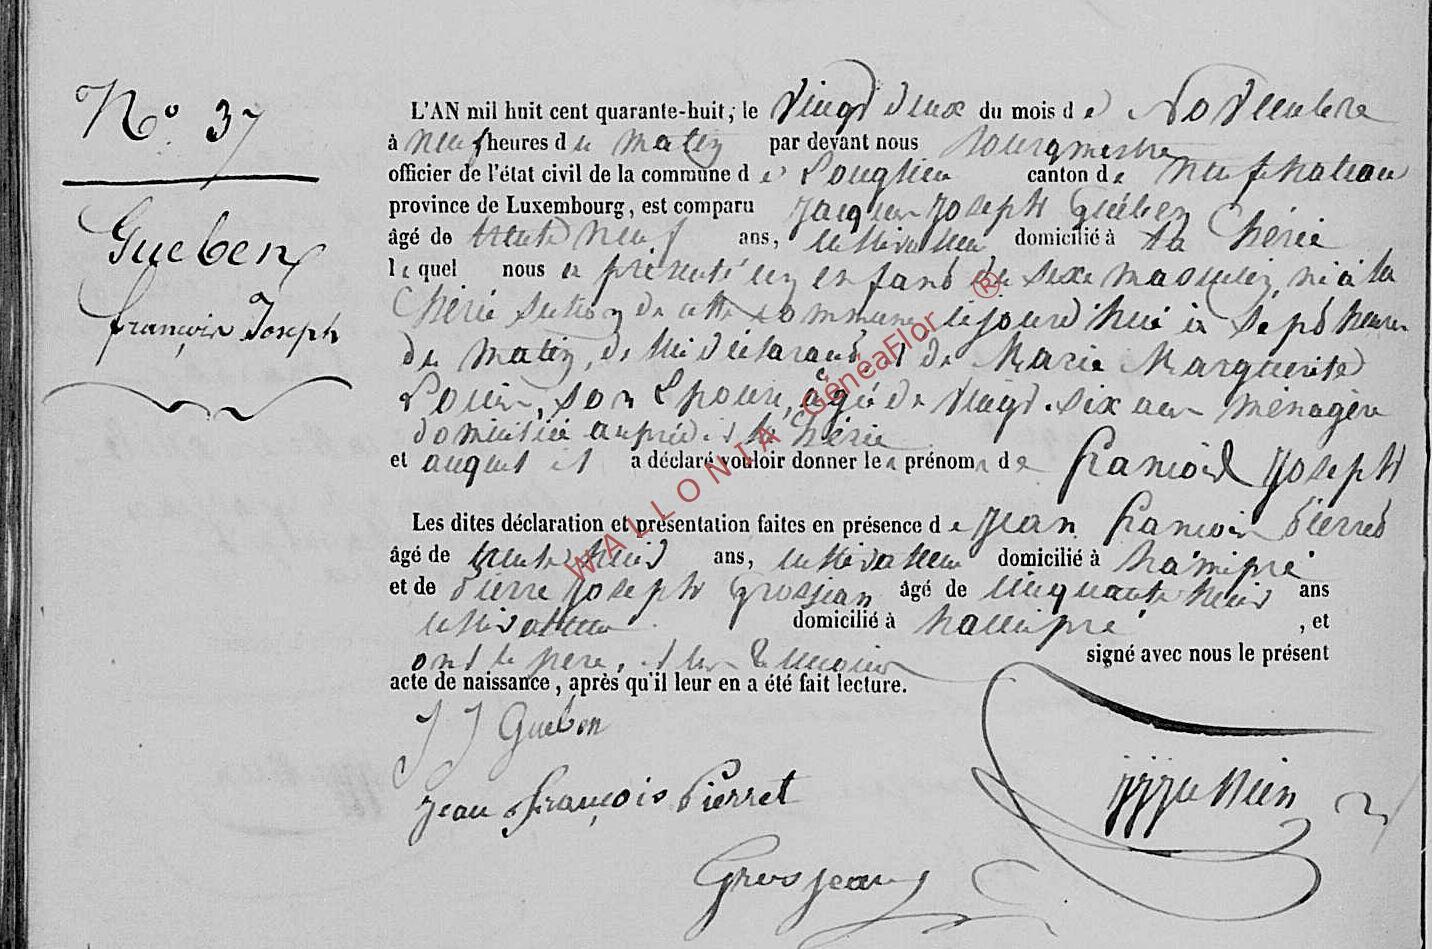 N° 37
Gueben
françois Joseph
L'AN mil huit cent quarante-huit, le Vingt deux du mois d e Novembre
à neuf heures d u matin par devant nous bourgmestre
officier de l'état civil de la commune d e Longlier canton de neufchateau
province de Luxembourg, est comparu Jacques Joseph Guében
âgé de trente neuf ans, cultivateur domicilié à la Chérie
lequel nous a présenté un enfant du sexe masculin, né à la
Chérie section de cette commune cejourd'hui à sept heures
du matin, de lui déclarant, et de Marie Marguerite
son Epouse, agée de vingt-six ans ménagère
domiciliée à la Chérie
et auquel il a déclaré vouloir donner les prénoms de francois Joseph
Les dites déclaration et présentation faites en présence d e Jean francois Pierret
âgé de trente huit ans, cultivateur domicilié à hamipré
et de Pierre Joseph Grosjean âgé de cinquante huit ans
cultivateur domicilié à hamipré , et
ont le père, et les témoins signé avec nous le présent
acte de naissance, après qu'il leur en a été fait lecture.
J J Gueben
Jean françois Pierret
Grosjean
WALLONIA GénéaFlor ®